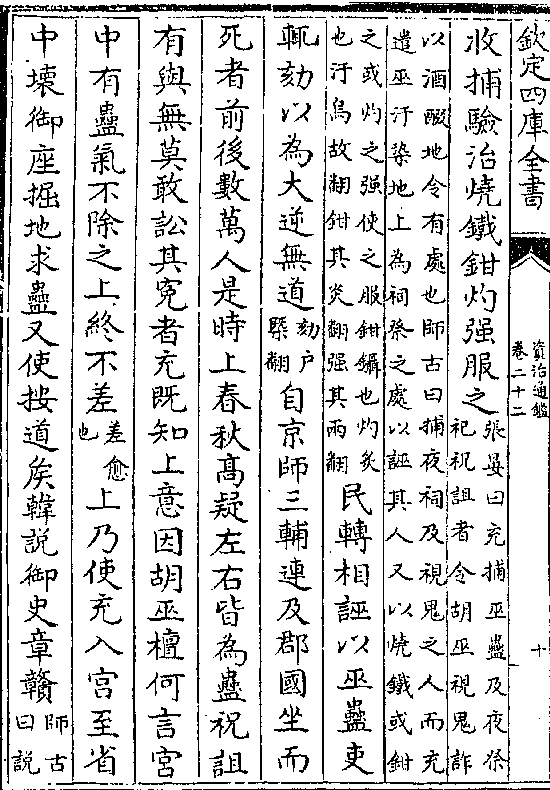 欽定四庫全書
資治通鑑
卷二十二
十
收捕驗治燒鐵鉗灼强服之
張晏曰充捕巫蠱及夜祭
祀祝詛者令胡巫視鬼詐
以酒醊地令有處也師古曰捕夜祠及視鬼之人而充
遣巫汙染地上為祠祭之處以誣其人又以燒鐵或鉗
之或灼之强使之服鉗鑷也灼炙
也汙烏故翻鉗其炎翻强其兩翻
民轉相誣以巫蠱吏
輒劾以為大逆無道
劾户
槩翻
自京師三輔連及郡國坐而
死者前後數萬人是時上春秋髙疑左右皆為蠱祝詛
有與無莫敢訟其寃者充既知上意因胡巫檀何言宮
中有蠱氣不除之上終不差
差愈
也
上乃使充入宮至省
中壞御座掘地求蠱又使按道矦韓説御史章贛
師古
曰説